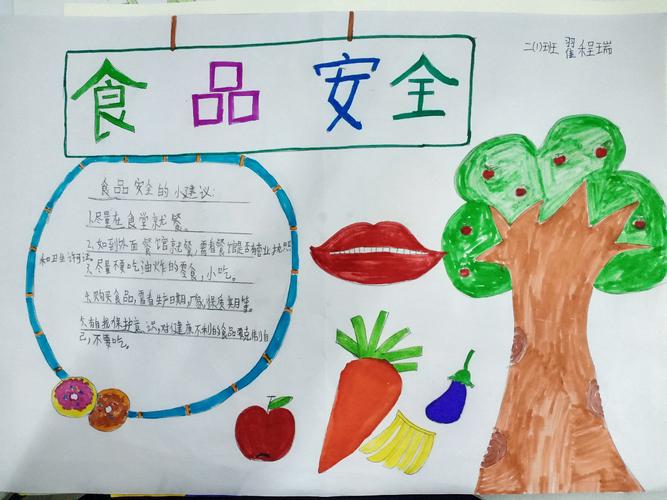 食品安全
二(1)班 翟程瑞
食品安全的小建议:
1.尽量在食堂就餐。
2.如到外面餐馆就餐,需看餐馆是否有营业执照
和卫生许可证。
3.尽量不要吃油炸的零食,小吃。
4.购买食品,需看生产日期,厂家,保质期等。
5.有自我保护意识,对健康不利的食品要克制自
己,不要吃。